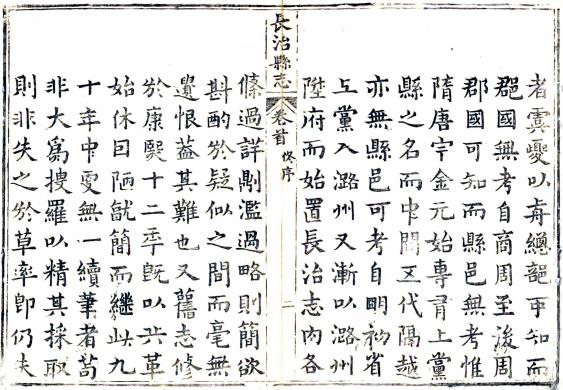 者虞夏以前總可知而
郡國無考自商周至後周
郡國可知而縣邑無考惟
隋唐宋金元始專有上黨
縣之名而中間五代隔越
亦無縣邑可考自明初省
上黨入潞州又漸以潞州
陞府而始置長治志內各
長治縣志 卷首 修序 二
條過詳則濫過略則簡欲
斟酌於疑似之間而毫無
遺恨蓋其難也又舊志修
於康熙十二年旣以兵革
始休因陋就簡而繼此九
十年中更無一續筆者苟
非大爲搜羅以精其採取
則非失之於草率卽仍失